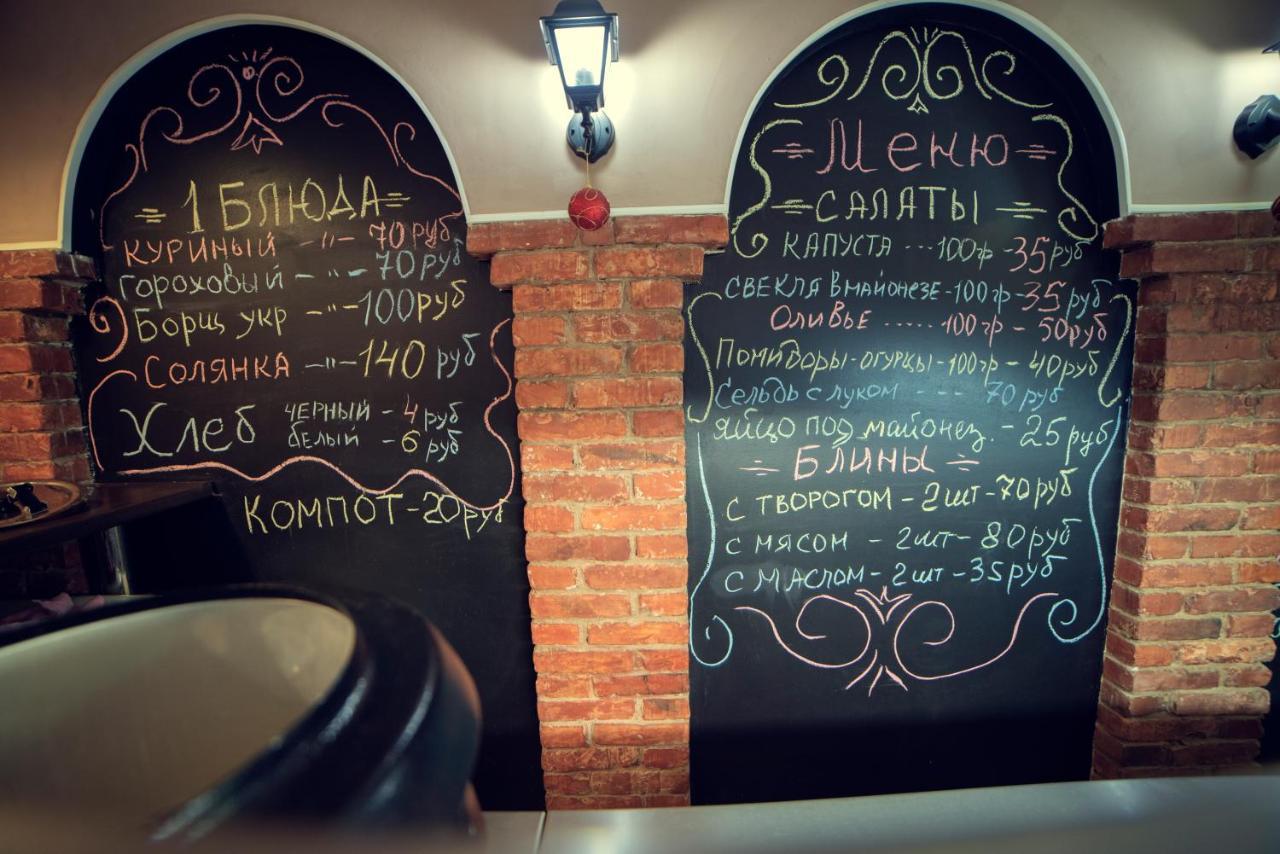 1 БЛЮДА
КУРИНЫЙ - " - 70 руб
ГОРОХОВЫЙ - " - 70 руб
Борщ укр - " - 100 руб
СОЛЯНКА - " - 140 руб
Хлеб ЧЕРНЫЙ - 4 руб
белый - 6 руб
КОМПОТ - 20 руб
Меню
САЛАТЫ
КАПУСТА ... 100 гр - 35 руб
СВЕКЛА в МАЙОНЕЗЕ - 100 гр - 35 руб
ОЛИВЬЕ ..... 100 гр - 50 руб
Помидоры - огурцы - 100 гр - 40 руб
Сельдь с луком --- 70 руб
яйцо под майонез. - 25 руб
БЛИНЫ
С ТВОРОГОМ - 2 шт - 70 руб
С МЯСОМ - 2 шт - 80 руб
С МАСЛОМ - 2 шт - 35 руб